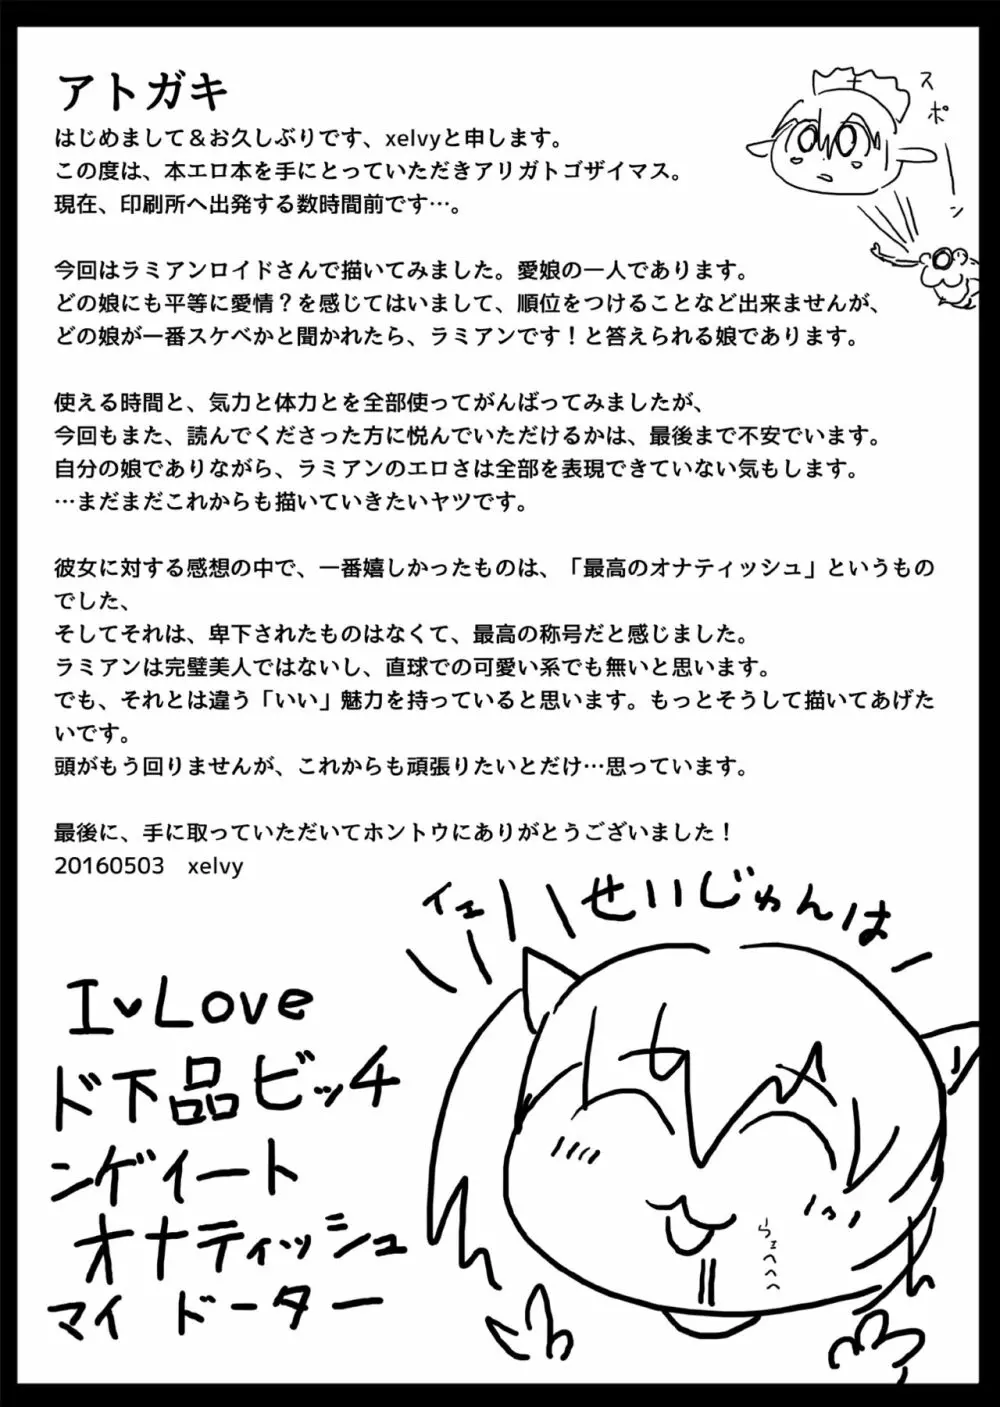 アトガキ
はじめまして＆お久しぶりです、xelvyと申します。
この度は、本エロ本を手にとっていただきアリガトゴザイマス。
現在、印刷所へ出発する数時間前です…。
スポーン
今回はラミアンロイドさんで描いてみました。愛娘の一人であります。
どの娘にも平等に愛情？を感じてはいまして、順位をつけることなど出来ませんが、
どの娘が一番スケベかと聞かれたら、ラミアンです！と答えられる娘であります。
使える時間と、気力と体力とを全部使ってがんばってみましたが、
今回もまた、読んでくださった方に悦んでいただけるかは、最後まで不安でいます。
自分の娘でありながら、ラミアンのエロさは全部を表現できていない気もします。
…まだまだこれからも描いていきたいヤツです。
彼女に対する感想の中で、一番嬉しかったものは、「最高のオナティッシュ」というもの
でした、
そしてそれは、卑下されたものはなくて、最高の称号だと感じました。
ラミアンは完璧美人ではないし、直球での可愛い系でも無いと思います。
でも、それとは違う「いい」魅力を持っていると思います。もっとそうして描いてあげた
いです。
頭がもう回りませんが、これからも頑張りたいとだけ…思っています。
最後に、手に取っていただいてホントウにありがとうございました！
20160503　xelvy
イェ
せいじゅんは
I♥Love
ド下品ビッチ
ンゲイート
オナティッシュ
マイ ドーター
うェへへへ